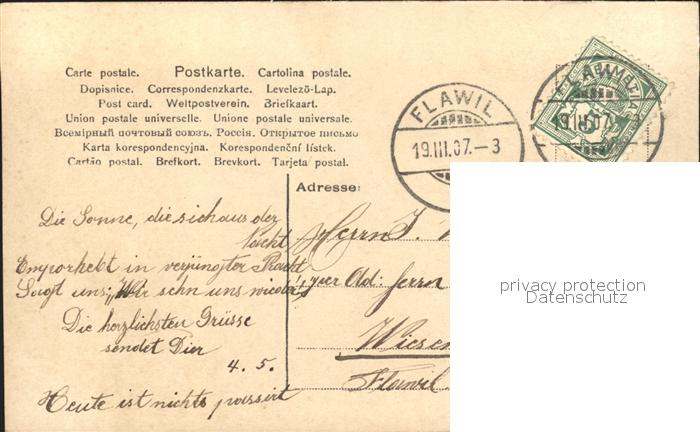 Carte postale. Postkarte. Cartolina postale.
Dopisnice. Correspondenzkarte. Levelező-Lap.
Post card. Weltpostverein. Briefkaart.
Union postale universelle. Unione postale universale.
Всемірный почтовый союзъ. Россія. Открытое письмо
Karta korespondencyjna. Korespondenční lístek.
Cartão postal. Brefkort. Brevkort. Tarjeta postal.
FLAWIL
19.III.07.-3
FLAWIL
19.III.07.-3
Adresse:
Die Sonne, die sich aus der
Nacht
Emporhebt in verjüngter Pracht
Sagt uns: „Wir sehn uns wieder,
Die herzlichsten Grüsse
sendet Dier
4. 5.
Heute ist nichts passirt
Herrn J.
Ad: Herrn
Wiesen
Flawil
privacy protection
Datenschutz